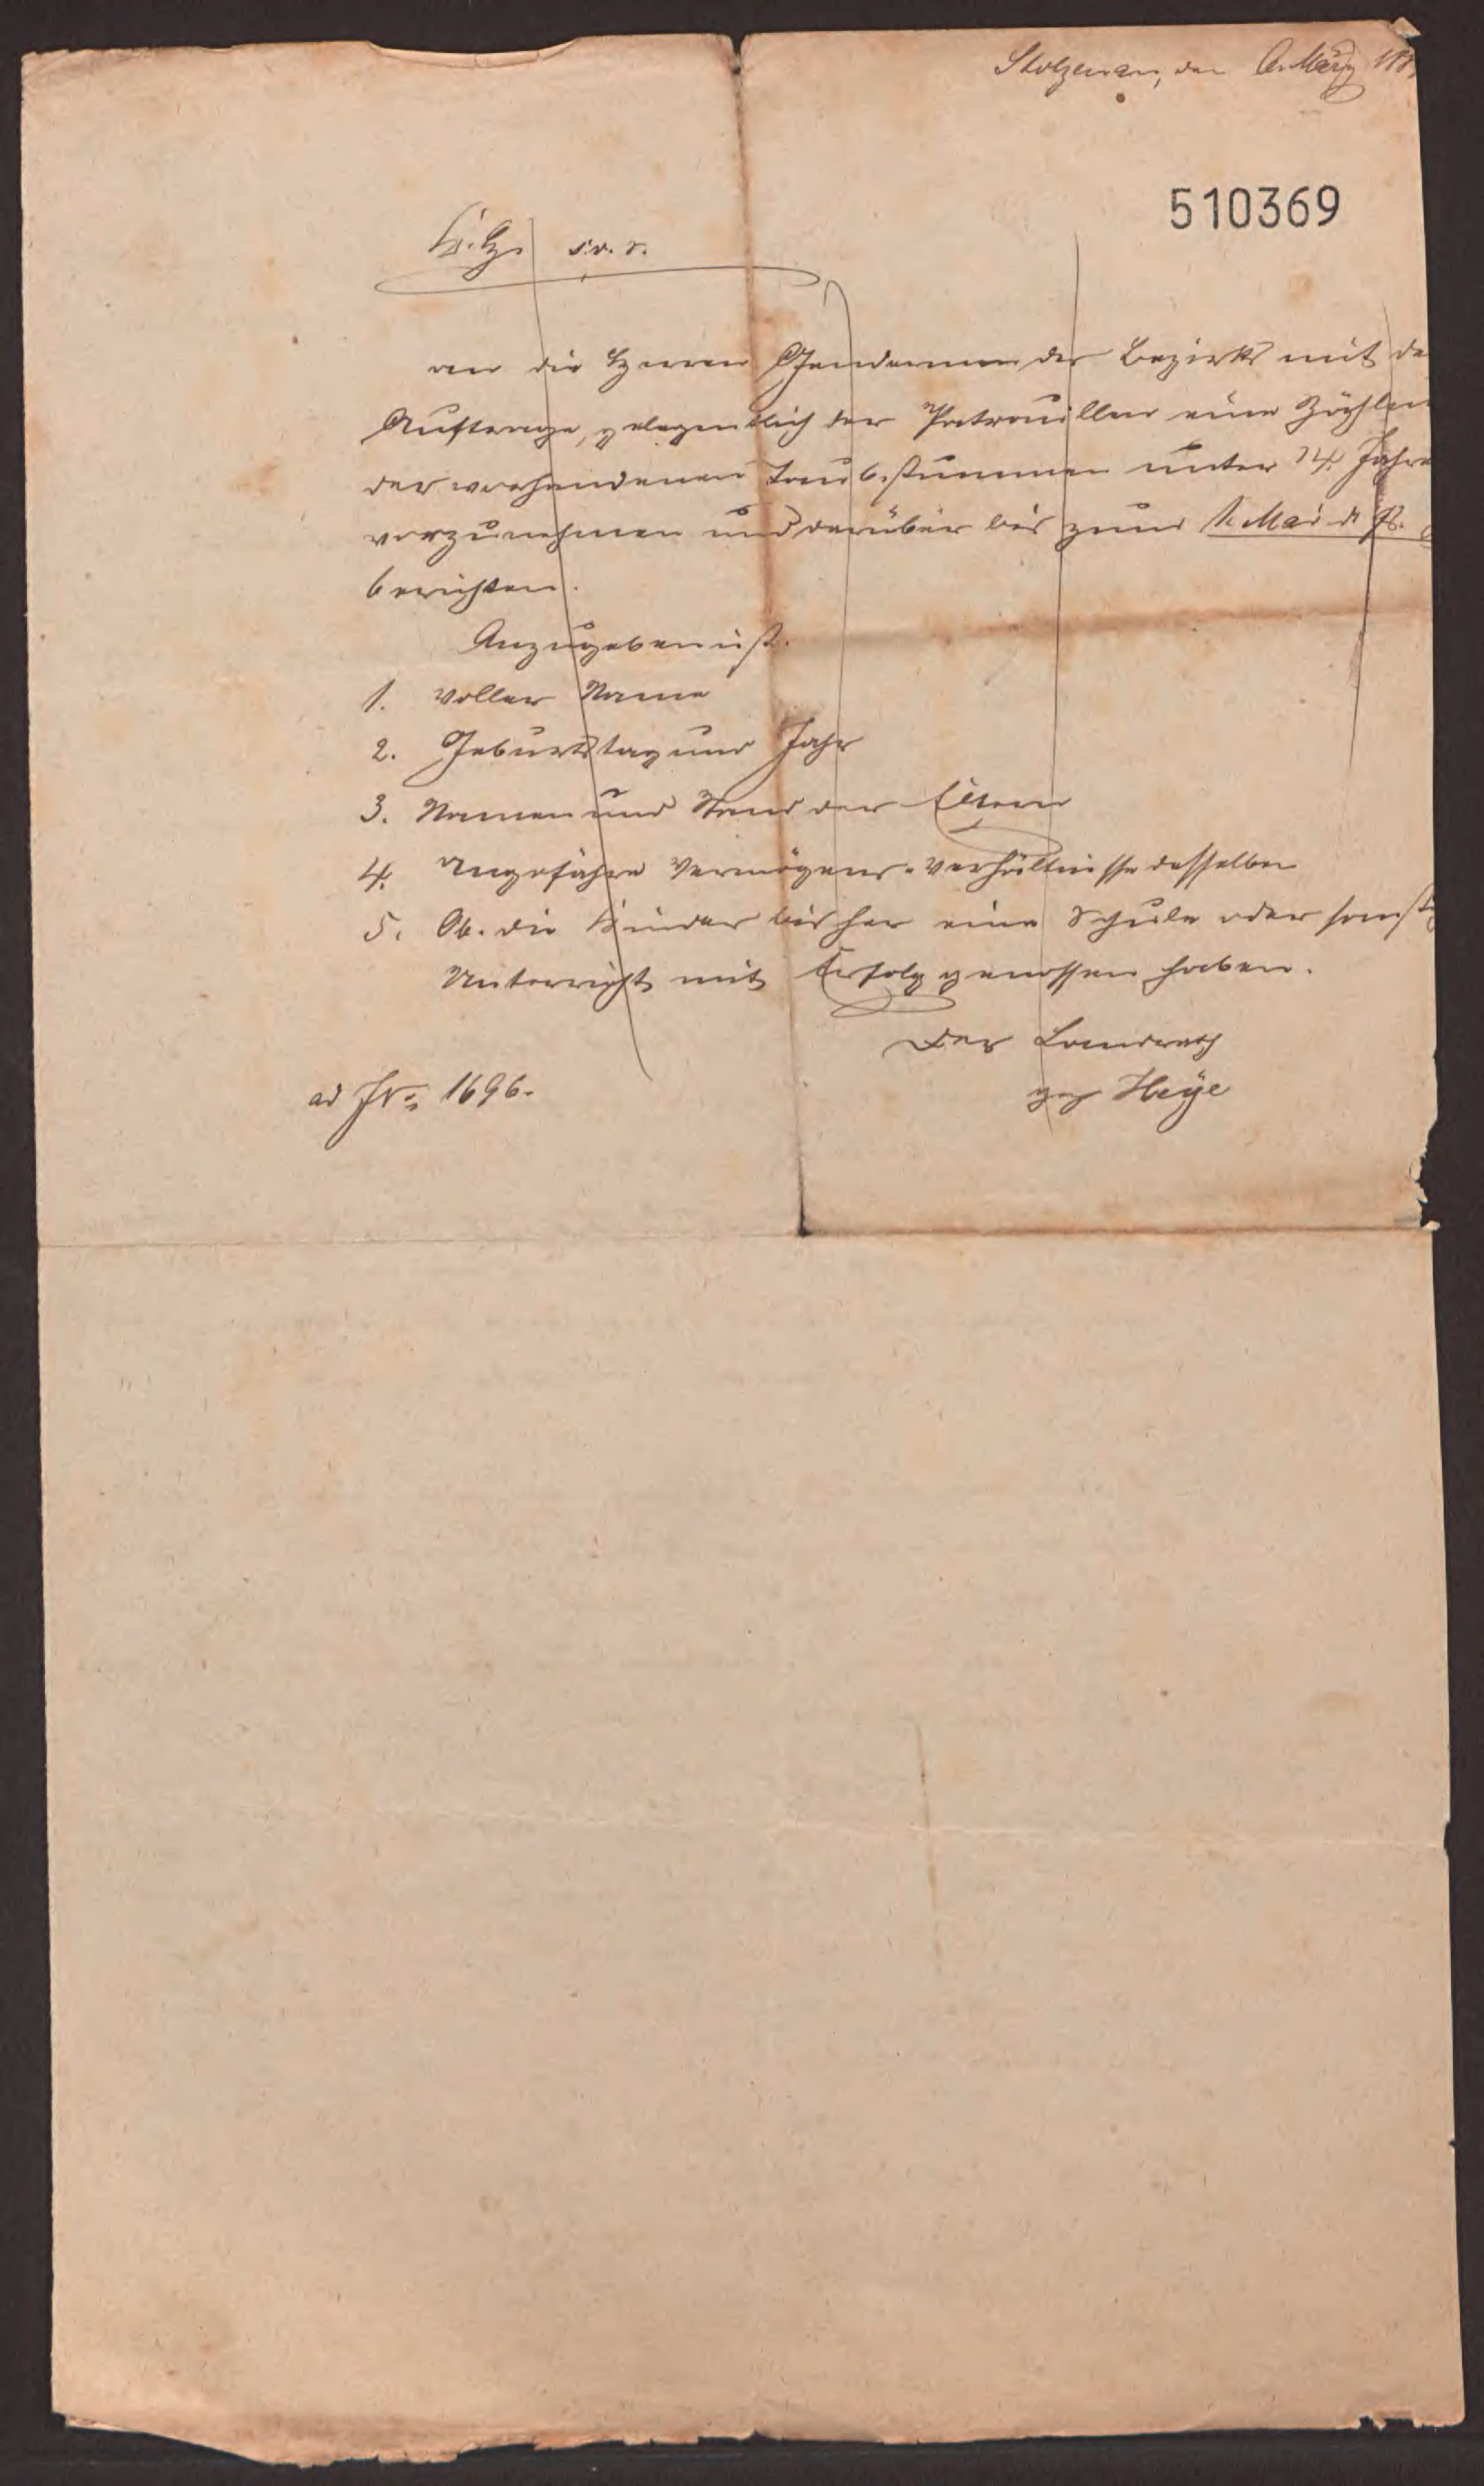 Stolzenau, den 6. März 188
510369
s. v. r.
an die Herren Gendarmen des Bezirks mit de
Auftrage, gelegentlich der Patrouillen eine Zählun
der vorhandenen Taubstummen unter 14 Jahre
vorzunehmen und darüber bis zum 1. Mai d. Js.
berichten.
Anzugeben ist.
1. Voller Name
2. Geburtstag und Jahr
3. Namen und Stand der Eltern
4. Ungefähre Vermögens-Verhältnisse desselben
5. Ob. die Kinder bisher eine Schule oder sonst
Unterricht mit Erfolg genossen haben.
Der Landrath
gez Heye
ad J.N. 1696.